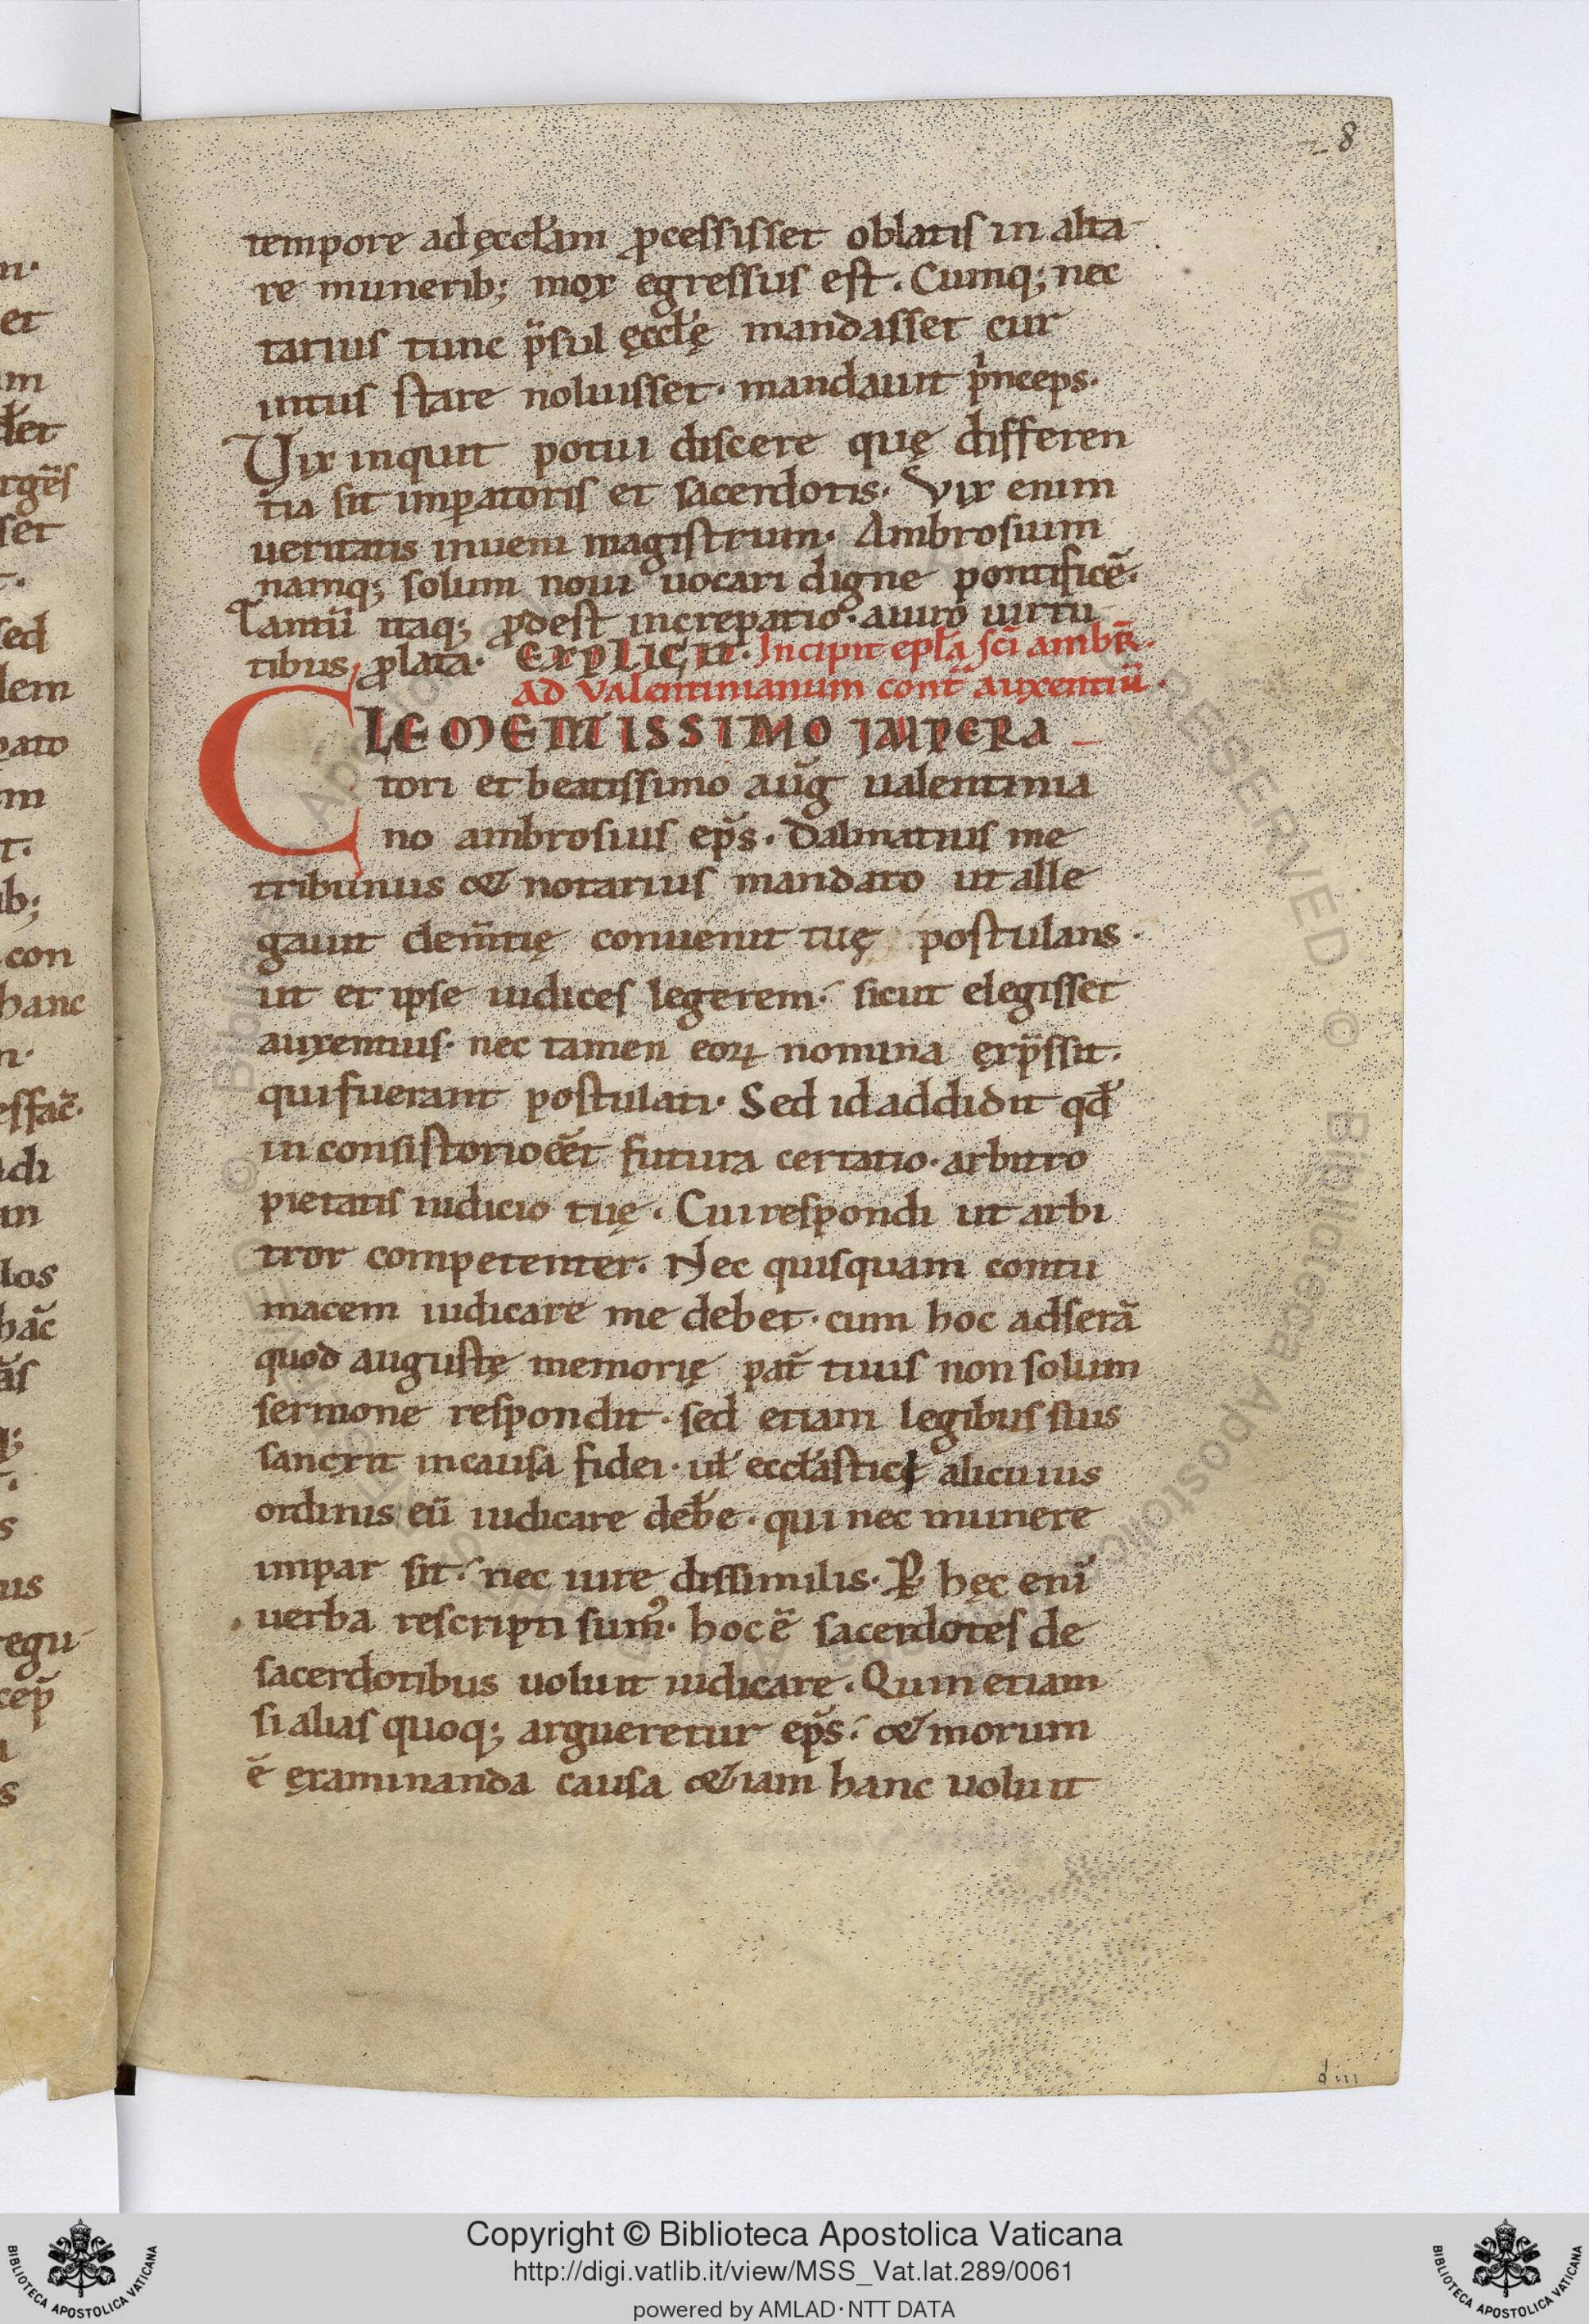 8
tempore ad ęccl̄am ꝓcessisset oblatis in alta
re munerib; mox egressus est. Cumq; nec
tarius tunc p̄sul ęccl̄ę mandasset cur
intus stare noluisset. mandauit p̄nceps.
Vix inquit potui discere quę differen
tia sit imꝑatoris et sacerdotis. Vix enim
ueritatis inueni magistrum. Ambrosium
namq; solum noui uocari digne pontificē.
Tantū itaq; ꝓdest increpatio. a uiro uirtu
tibus ꝓlata. EXPLICIT. Incipit epl̄a sc̄i ambr̄.
ad Valentinianum cont̄ auxentiū.
CLEMENTISSIMO IMPERA
tori et beatissimo auḡ ualentinia
no ambrosius ep̄s. Dalmatius me
tribunus & notarius mandato ut alle
gauit clem̄tię conuenit tuę postulans.
ut et ipse iudices legerem. sicut elegisset
auxentius. nec tamen eoꝝ nomina exp̄ssit.
qui fuerant postulati. Sed id addidit qđ
in consistorio eēt futura certatio. arbitro
pietatis iudicio tuę. Cui respondi ut arbi
tror competenter. Nec quisquam contu
macem iudicare me debet. cum hoc adserā
quod augustę memorię pat̄ tuus non solum
sermone respondit. sed etiam legibus suis
sanxit in causa fidei. ul̄ eccl̄astici alicuius
ordinis eū iudicare deb̄e. qui nec munere
impar sit. nec iure dissimilis. hęc eni̅
uerba rescripti sunt. hoc ē sacerdotes de
sacerdotibus uoluit iudicare. Quin etiam
si alias quoq; argueretur ep̄s. & morum
ē examinanda causa &iam hanc uoluit
d iii
n.
et
m
sed
dem
m
con
hanc
di
los
hāc
s
us
Copyright © Biblioteca Apostolica Vaticana
http://digi.vatlib.it/view/MSS_Vat.lat.289/0061
powered by AMLAD·NTT DATA
BIBLIOTECA APOSTOLICA VATICANA
BIBLIOTECA APOSTOLICA VATICANA